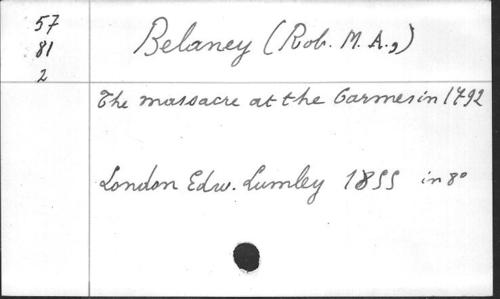 57
81
2
Belaney (Rob. M. A.,)
The massacre at the Carmes in 1792
London Edw. Lumley 1855 in 8°